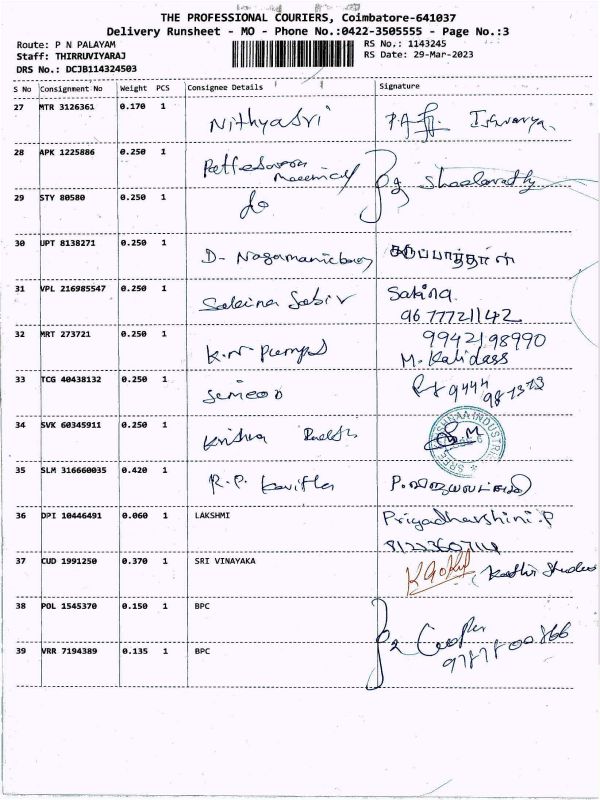 THE PROFESSIONAL COURIERS, Coimbatore-641037
Delivery Runsheet - MO - Phone No.:0422-3505555 - Page No.:3
Route: P N PALAYAM RS No.: 1143245
Staff: THIRRUVIYARAJ RS Date: 29-Mar-2023
DRS No.: DCJB114324503
S No Consignment No Weight PCS Consignee Details Signature
27 MTR 3126361 0.170 1 NithyaSri Ishvarya
28 APK 1225886 0.250 1
29 STY 80580 0.250 1 do
30 UPT 8138271 0.250 1 கருப்பாத்தாள்
31 VPL 216985547 0.250 1 Sakina Sabir Sakina
96 77721142
32 MRT 273721 0.250 1 K.N Pumps 9942198990
M. Kalidass
33 TCG 40438132 0.250 1 9444
981313
34 SVK 60345911 0.250 1 Krishna
35 SLM 316660035 0.420 1 R.P. Kavitha
36 DPI 10446491 0.060 1 LAKSHMI Priyadharshini.P
37 CUD 1991250 0.370 1 SRI VINAYAKA K Gokul
38 POL 1545370 0.150 1 BPC
39 VRR 7194389 0.135 1 BPC